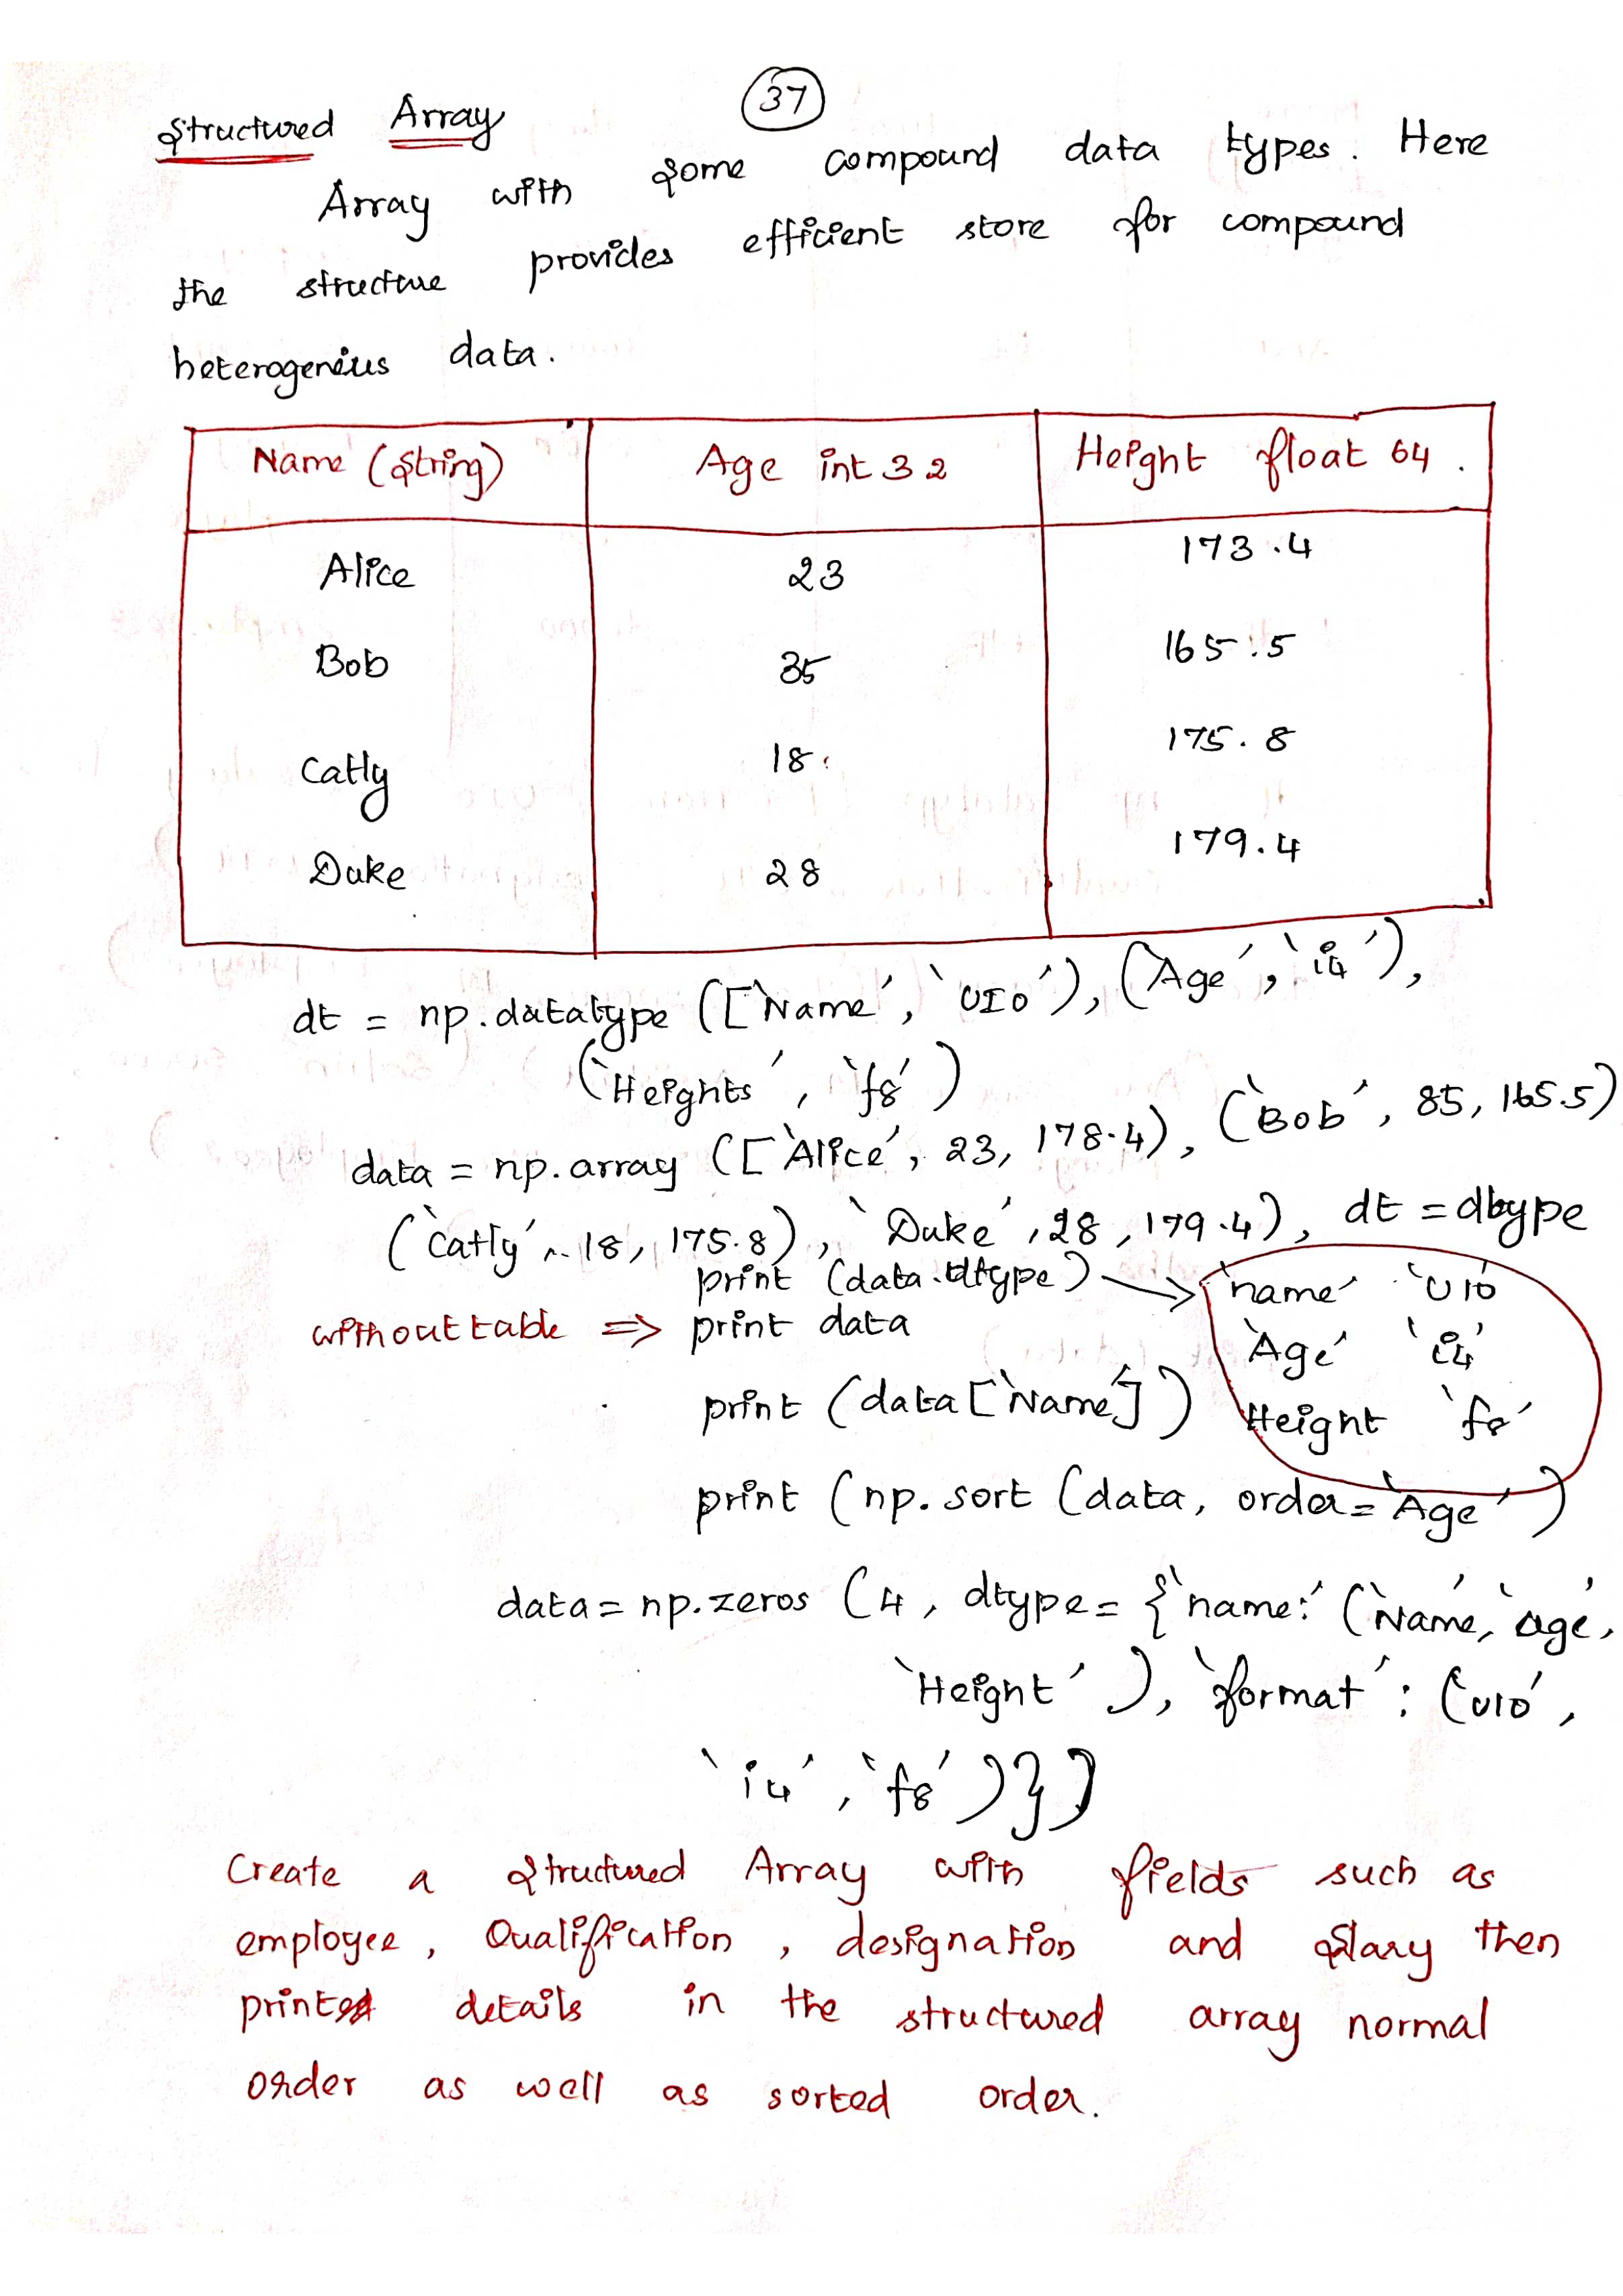 37
Structured Array
Array with some compound data types. Here
the structure provides efficient store for compound
heterogenius data.
Name (String) Age int 32 Height float 64.
Alice 23 173.4
Bob 35 165.5
Catly 18 175.8
Duke 28 179.4
dt = np.datatype (['Name', 'UI0'), ('Age', 'i4'),
('Heights', 'f8')
data = np.array (['Alice', 23, 178.4), ('Bob', 85, 165.5)
('Catly' 18, 175.8), 'Duke', 28, 179.4), dt = dtype
print (data.dtype) → 'name' 'U10
without table ⇒ print data 'Age' 'i4'
print (data ['Name']) Height 'f8'
print (np.sort (data, order = 'Age')
data = np.zeros (4, dtype = {'name:' ('Name', 'age',
'Height'), 'format': ('U10',
'i4', 'f8')})
Create a Structured Array with fields such as
employee, Qualification, designation and Slary then
print details in the structured array normal
order as well as sorted order.